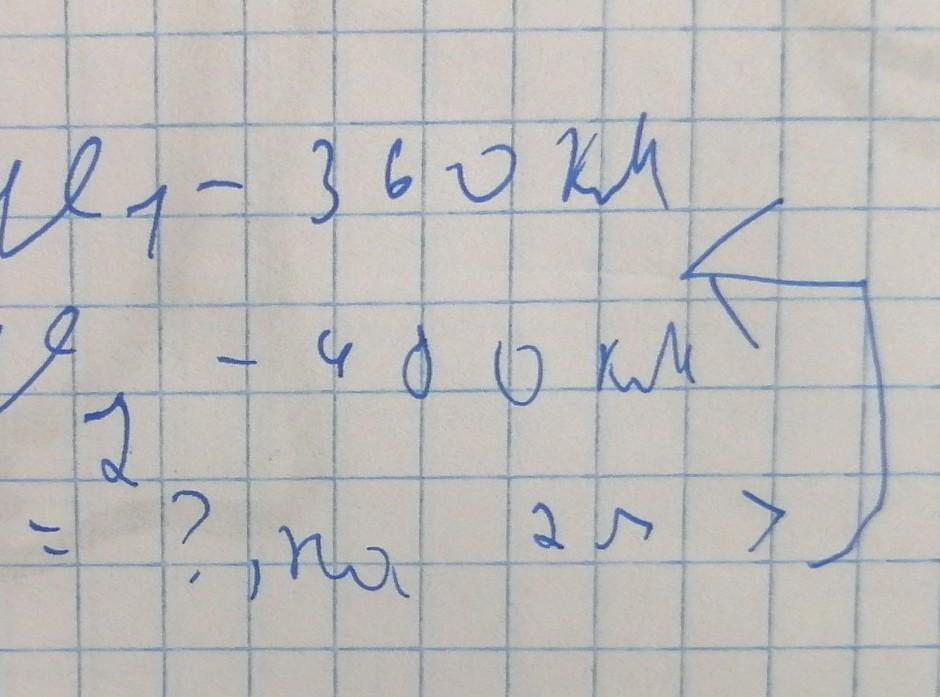 l₁ - 360 км
l₂ - 400 км
= ?, на 2л >